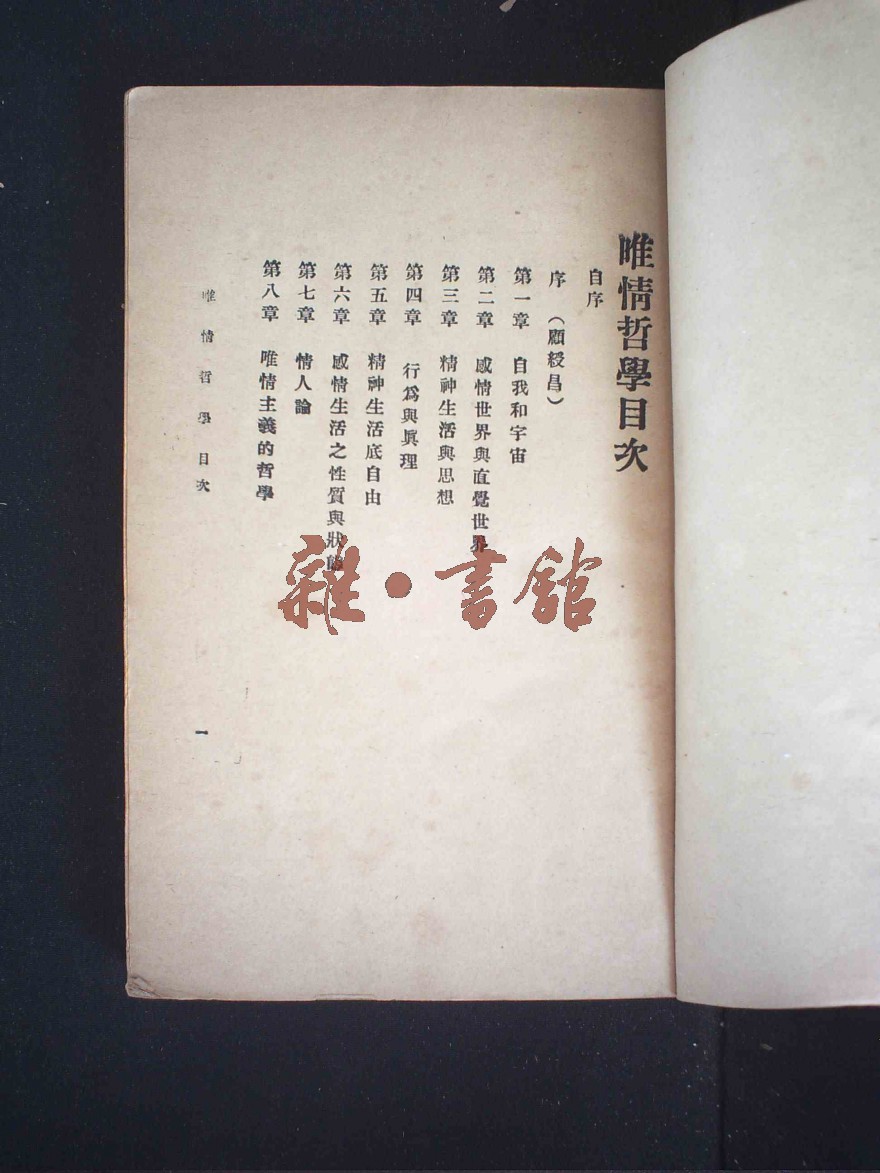 唯情哲學目次
自序
序（顧綬昌）
第一章 自我和宇宙
第二章 感情世界與直覺世界
第三章 精神生活與思想
第四章 行爲與眞理
第五章 精神生活底自由
第六章 感情生活之性質與狀態
第七章 情人論
第八章 唯情主義的哲學
唯情哲學目次
一
雜·書館